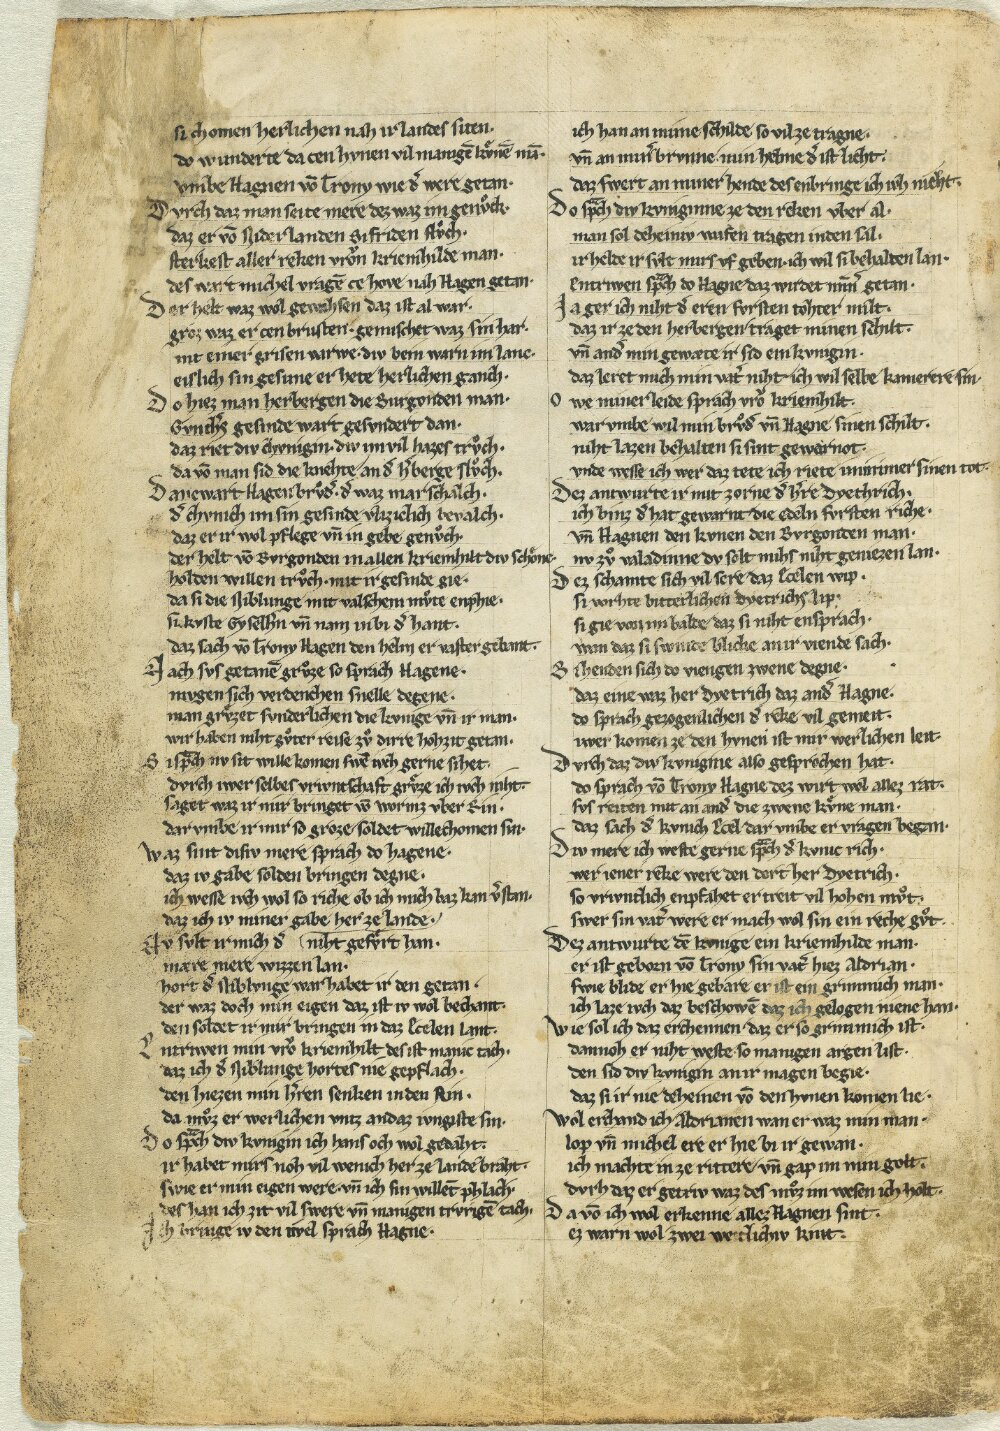 si chomen herlichen nah ir landes siten·
do wunderte da cen hynen vil manigē kvͦnē mā·
vmbe Hagnen vō Trony wie dʼ were getan·
Dvrch daz man seite mere dez waz im genvͦck·
daz er vō Niderlanden Sifriden slvͦch·
sterkest aller reken vrōn kriemhilde man·
des wart michel vragē ce hove nah Hagen getan·
Der helt waz wol gewahsen daz ist al war·
groz waz er cen brusten· gemischet waz sin har·
mit einer grisen varwe· div bein warn im lanc·
eislich sin gesune er hete herlichen ganch·
Do hiez man herbergen die Burgonden man·
Gvnthʼs gesinde wart gesvndert dan·
daz riet div chvnigin· div im vil hazes trvͦch·
da vō man sid die knehte an dʼ hʼberge slvͦch·
Danewart Hagen brvͦdʼ· dʼ waz marschalch·
dʼ chvnich im sin gesinde vlizielich bevalch·
daz er ir wol pflege vn̄ in gebe genvͦch·
der helt vō Bvrgonden in allen kriemhilt div schone·
holden willen trvͦch· mit ir gesinde gie·
da si die Niblunge mit valschem mvͦte enphie·
si kvste Gyselhʼn vn̄ nam in bi dʼ hant·
daz sach vō Trony Hagen den helm er vaster gebant·
Nach svs getanē grvͦze so sprach Hagene·
mvgen sich verdenchen snelle degene·
man grvͦzet svnderlichen die kvnige vn̄ ir man·
wir haben niht gvͦter reise zvͦ dirre hohzit getan·
Si sp̄ch nv sit wille komen swē iwch gerne sihet·
dvrch iwer selbes vrivntschaft grvͦze ich iwch niht·
saget waz ir mir bringet vō wormz vber Rin·
dar vmbe ir mir so groze soldet willechomen sin·
Waz sint disiv mere sprach do hagene·
daz iv gabe solden bringen degne·
ich wesse iwch wol so riche ob ich mich baz kan vʼstan·
daz ich iv miner gabe her ze lande·
Nv svlt ir mich dʼ niht gefvͦrt han·
mære mere wizzen lan·
hort dʼ Niblvnge war habet ir den getan·
der waz doch min eigen daz ist iv wol bechant·
den soldet ir mir bringen in daz Ecelen lant·
Entriwen min vrō kriemhilt des ist manic tach·
daz ich dʼ Niblunge hortes nie gepflach·
den hiezen min hʼren senken in den Rin·
da mvͦz er werlichen vntz an daz ivngiste sin·
Do sp̄ch div kvnigin ich hans och wol gedaht·
ir habet mirs noh vil wenich her ze lande braht·
swie er min eigen were· vn̄ ich sin willēt phlach·
des han ich zit vil swere vn̄ manigen trvrigē tach·
Ich bringe iv den tivel sprach Hagne·
ich han an mime schilde so vil ze tragne·
vn̄ an minʼ brvnne· min helme dʼ ist lieht·
daz swert an miner hende des enbringe ich iwh nieht·
Do sp̄ch div kvniginne ze den reken vber al·
man sol deheiniv wafen tragen in den sal·
ir helde ir sult mirs vf geben· ich wil si behalten lan·
Entriwen sp̄ch do Hagne daz wirdet nimʼ getan·
Ja ger ich niht dʼ eren fvrsten tohter milt·
daz ir ze den herbergen traget minen schilt·
vn̄ andʼ min gewæte ir sid ein kvnigin·
daz leret mich min vatʼ niht· ich wil selbe kamerere sin·
Owe miner leide sprach vrō kriemhilt·
war vmbe wil min brvͦdʼ vn̄ Hagne sinen schilt·
niht lazen behalten si sint gewarnot·
vnde wesse ich wer daz tete ich riete im immer sinen tot·
Dez antwurte ir mit zorne dʼ hʼre Dyethrich·
ich binz dʼ hat gewarnt die edeln fvrsten riche·
vn̄ Hagnen den kvnen den Bvrgonden man·
nv zvͦ valadinne dv solt mihs niht geniezen lan·
Dez schamte sich vil sere daz Ecelen wip·
si vorhte bitterlichen Dyetrichs lip·
si gie von im balde daz si niht ensprach·
wan daz si swinde blicke an ir viende sach·
Bi henden sich do viengen zwene degne·
daz eine waz her Dyetrich daz andʼ Hagne·
do sprach gezogenlichen dʼ reke vil gemeit·
iwer komen ze den hvnen ist mir werlichen leit·
Dvrch daz div kvnigine also gesprochen hat·
do sprach vō Trony Hagne dez wirt wol allez rat·
svs reiten mit an andʼ die zwene kvͦne man·
daz sach dʼ kvnich Ecel dar vmbe er vragen began·
Div mere ich weste gerne sp̄ch dʼ kvnic rich·
wer iener reke were den dort her Dyetrich·
so vrivntlich enpfahet er treit vil hohen mvͦt·
swer sin vatʼ were er mach wol sin ein reche gvͦt·
Dez antwurte dē konige ein kriemhilde man·
er ist geborn vō Trony sin vatʼ hiez Aldrian·
swie blide er hie gebare er ist ein grimmich man·
ich laze iwch daz beschowē daz ich gelogen niene han·
Wie sol ich daz erchennen daz er so grimmich ist·
dannoh er niht weste so manigen argen list·
den sid div kvnigin an ir magen begie·
daz si ir nie deheinen vō den hvnen komen lie·
Wol erchand ich Aldrianen wan er waz min man·
lop vn̄ michel ere er hie bi ir gewan·
ich machte in ze rittere vn̄ gap im min golt·
dvrh daz er getriv waz des mvͦz im wesen ich holt·
Da vō ich wol erkenne allez Hagnen sint·
ez warn wol zwei wetlichiv kint·